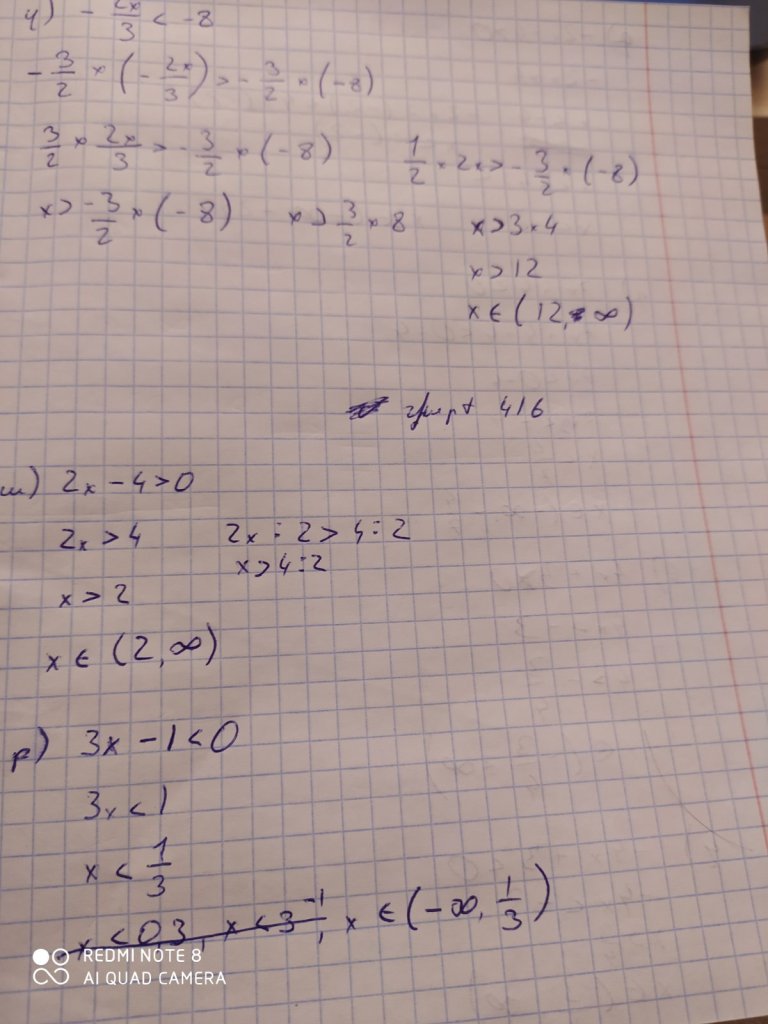 4) - 2x/3 < -8
- 3/2 × (- 2x/3) > - 3/2 × (-8)
3/2 × 2x/3 > - 3/2 × (-8) 1/2 × 2x > - 3/2 × (-8)
x > -3/2 × (-8) x > 3/2 × 8 x > 3×4
x > 12
x ∈ (12, ∞)
416
2x - 4 > 0
2x > 4 2x : 2 > 4 : 2
x > 4 : 2
x > 2
x ∈ (2, ∞)
բ) 3x - 1 < 0
3x < 1
x < 1/3
x < 0 3, x < 3⁻¹, x ∈ (-∞, 1/3)
REDMI NOTE 8
AI QUAD CAMERA